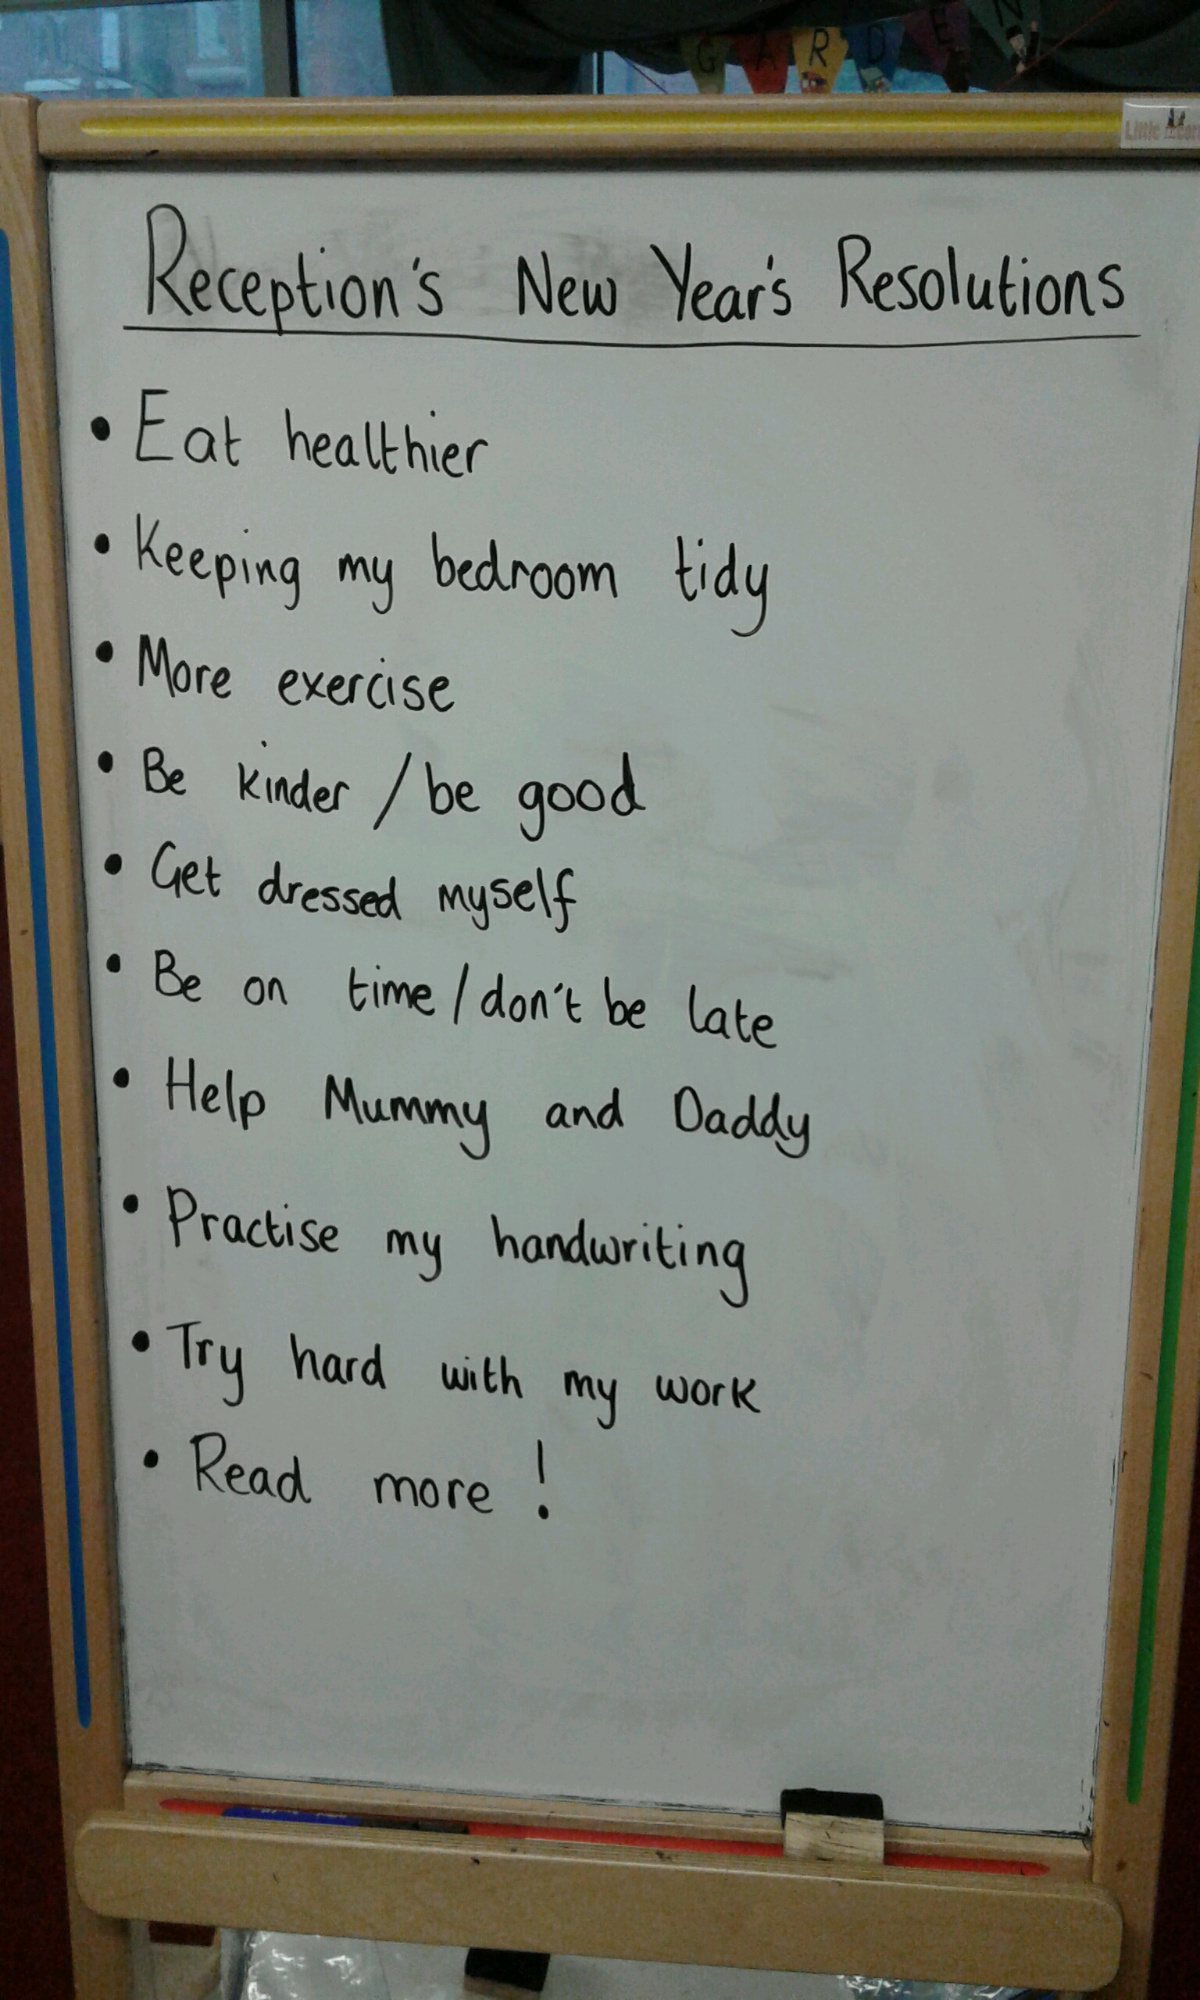 GARDEN
Little
Reception's New Year's Resolutions
• Eat healthier
• Keeping my bedroom tidy
• More exercise
• Be kinder / be good
• Get dressed myself
• Be on time / don't be late
• Help Mummy and Daddy
• Practise my handwriting
• Try hard with my work
• Read more !